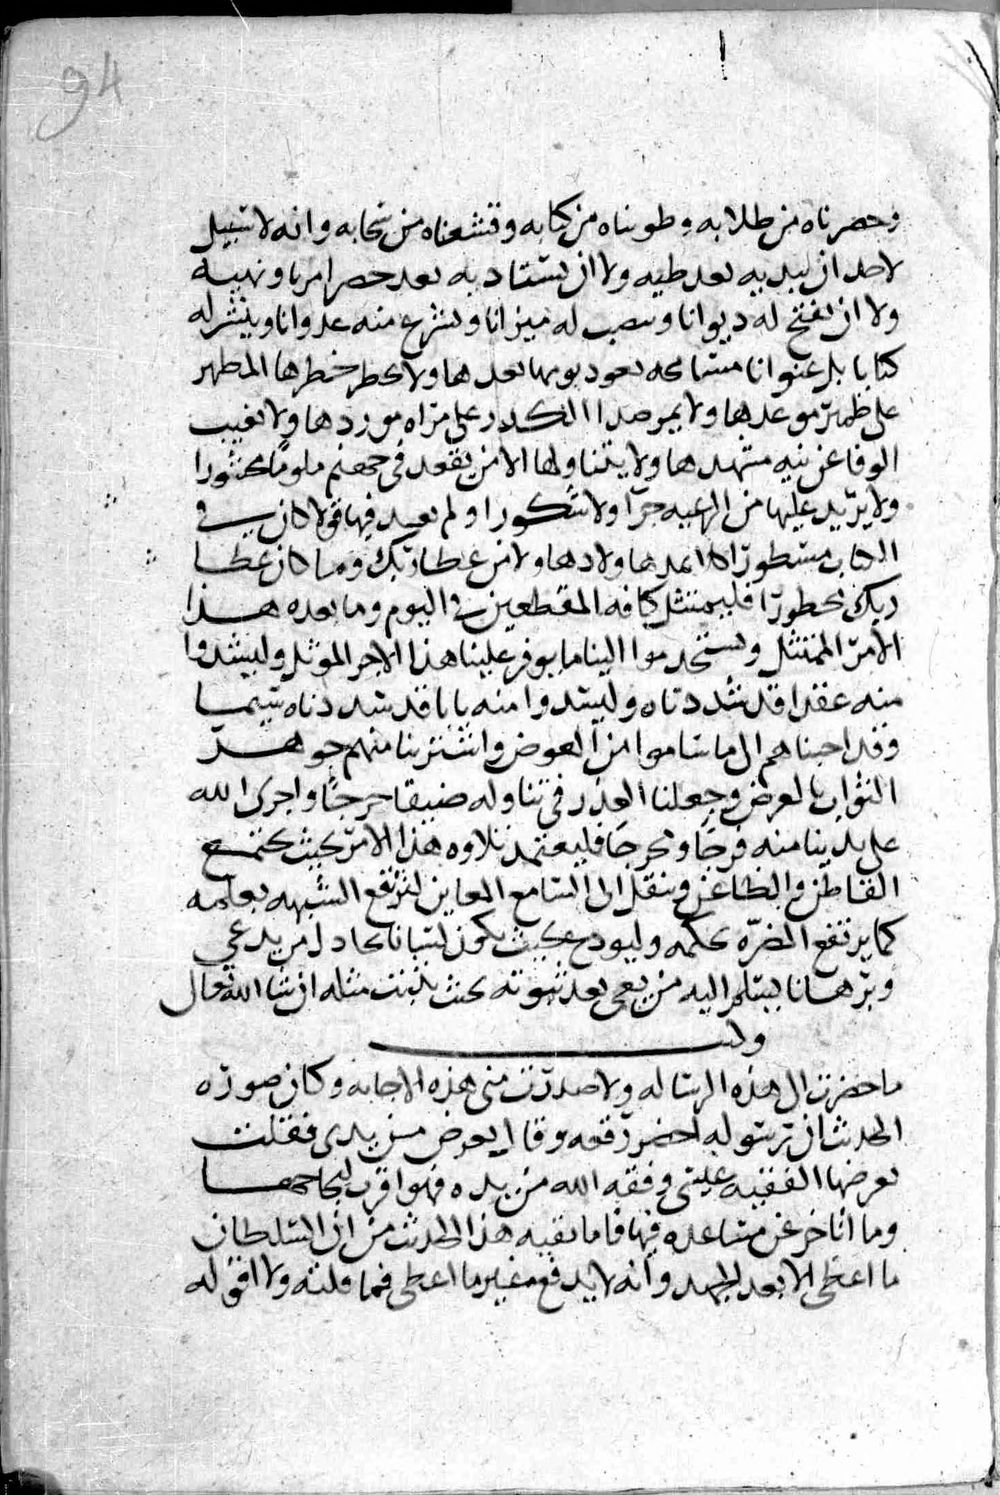 94
وحصرناه من طلابه وطويناه من كتابه وقشعناه من سحابه وانه لا سبيل
لاحد ان يبديه بعد طيه ولا ان يستاديه بعد حصر امرنا ونهيه
ولا ان يفتح له ديوانا وينصب له ميزانا ويشرع منه عدوانا وينشر له
كتابا بل عنوانا مسامحه يعود يومها بعدها ولا يخطر خطرها المطهر
على ظهر موعدها ولا يمر صدا الكدر على مراه موردها ولا يغيب
الوفا عن نيه مشهدها ولا يتناولها الا من يقعد في جهنم ملوما مثبورا
ولا يريد عليها من الرعيه جزا ولا شكورا ولم يعد فيها قولا كان في
الكتاب مسطورا كلا نمد هاولا وهاولا من عطا ربك وما كان عطا
ربك محظورا فليمتثل كافه المقطعين في اليوم وما بعده هذا
الامر الممتثل وليستخدموا الينا ما يوفر علينا هذا الاجر الموثل وليشدوا
منه عقدا قد شددناه وليسدوا منه بابا قد سددناه سيما
وقد اجبناهم الى ما ساموا من العوض واشترينا منهم جوهر
الثواب بالعرض وجعلنا العذر في تناوله ضيقا حرجا واجرى الله
على يدينا منه فرجا ومخرجا فليعتمد تلاوه هذا الامر بحيث يجتمع
القاطن والظاعن وينقل الى السامع المعاين لترتفع الشبهه بعلمه
كما يرتفع المضره بحكمه وليودع بحيث يكون لسانا يجادل من يدعي
وبرهانا يسلم اليه من يعي بعد ثبوته بحيث يثبت مثله ان شا الله تعالى
وله
ما حضرت الى هذه الرساله ولا صدرت مني هذه الاجابه وكان صوره
الحديث ان رسوله احضر رقعه وقال يعرض من يدي فقلت
يعرضها الفقيه عيسى وفقه الله من يده فهو اقرب لنجاحها
وما اتاخر عن مساعده فيها فاما بقيه هذا الحديث من ان السلطان
ما اعطى الا بعد الجهد وانه لا يدفع بغير ما اعطى فما قلته ولا اقوله